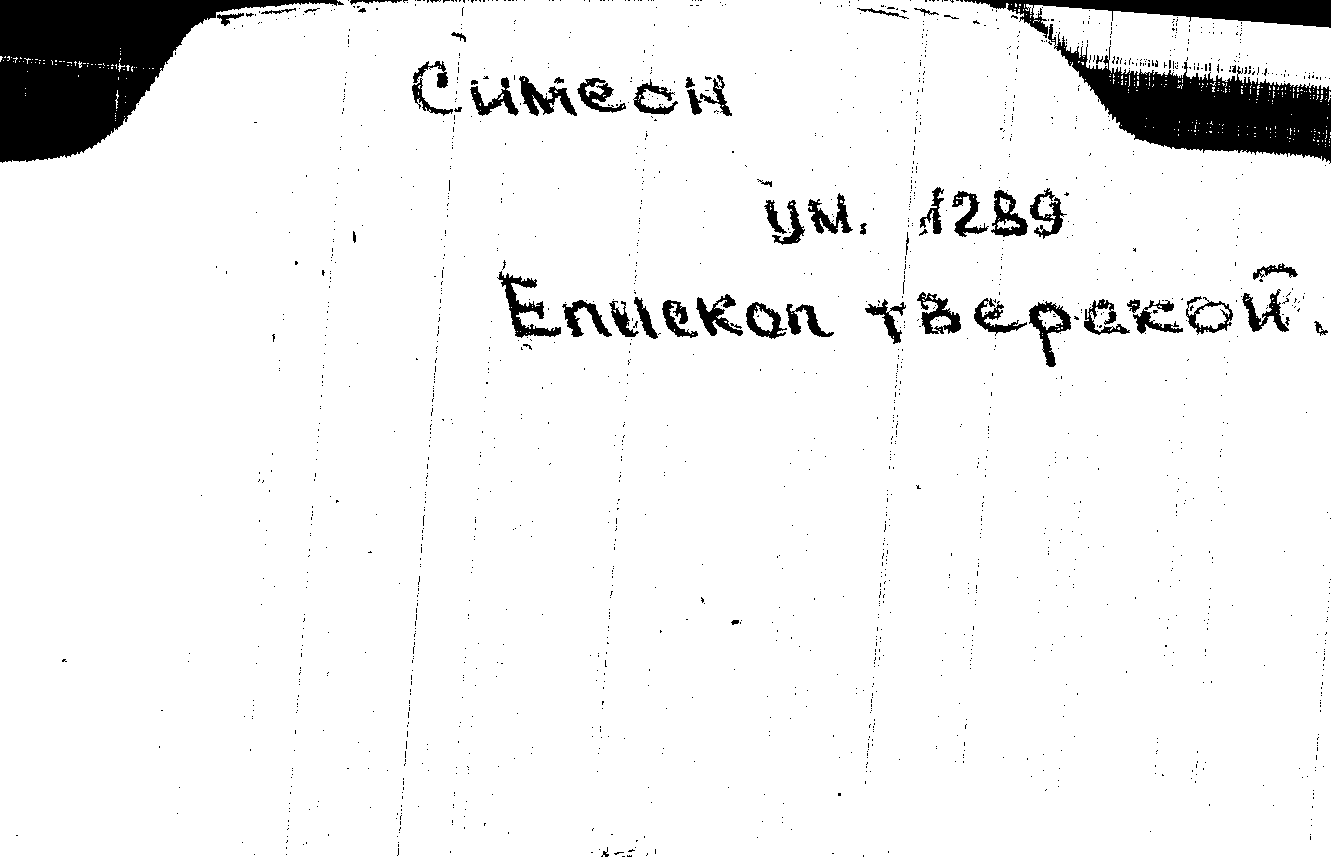 Симеон
ум. 1289
Епископ тверской.